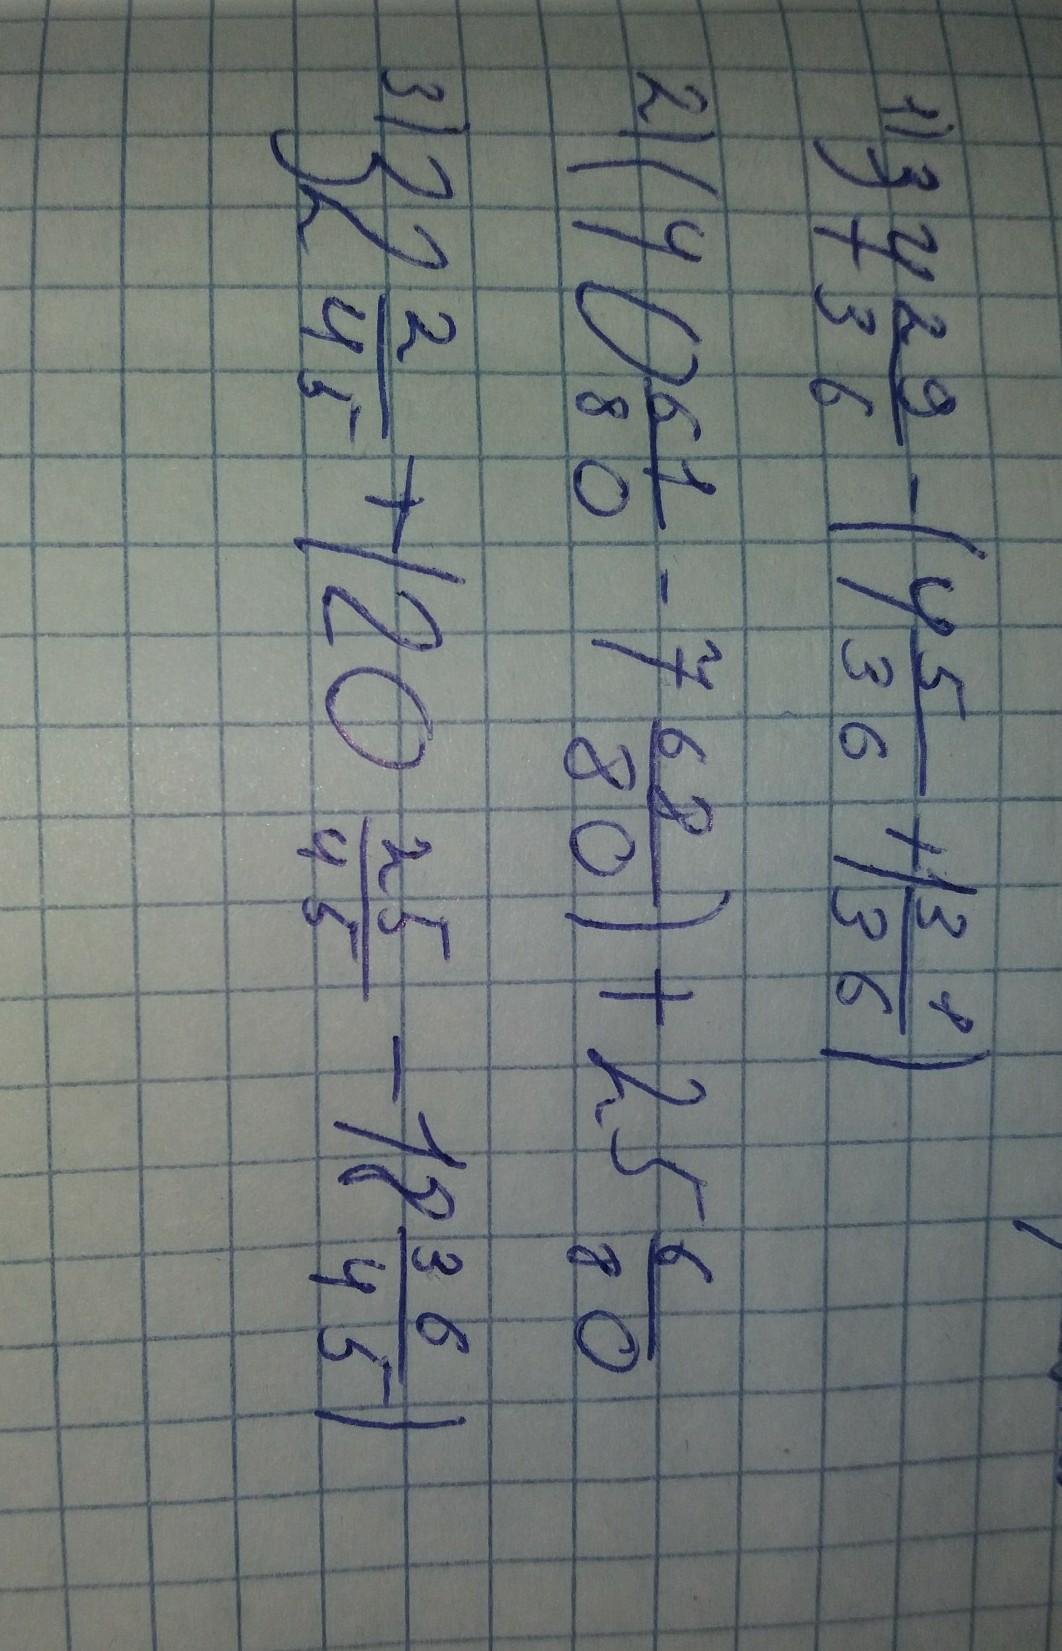 1) 37 29/36 - (4 5/36 + 1 31/36)
2) (40 61/80 - 7 68/80) + 25 6/80
3) 32 2/45 + (20 25/45 - 18 36/45)